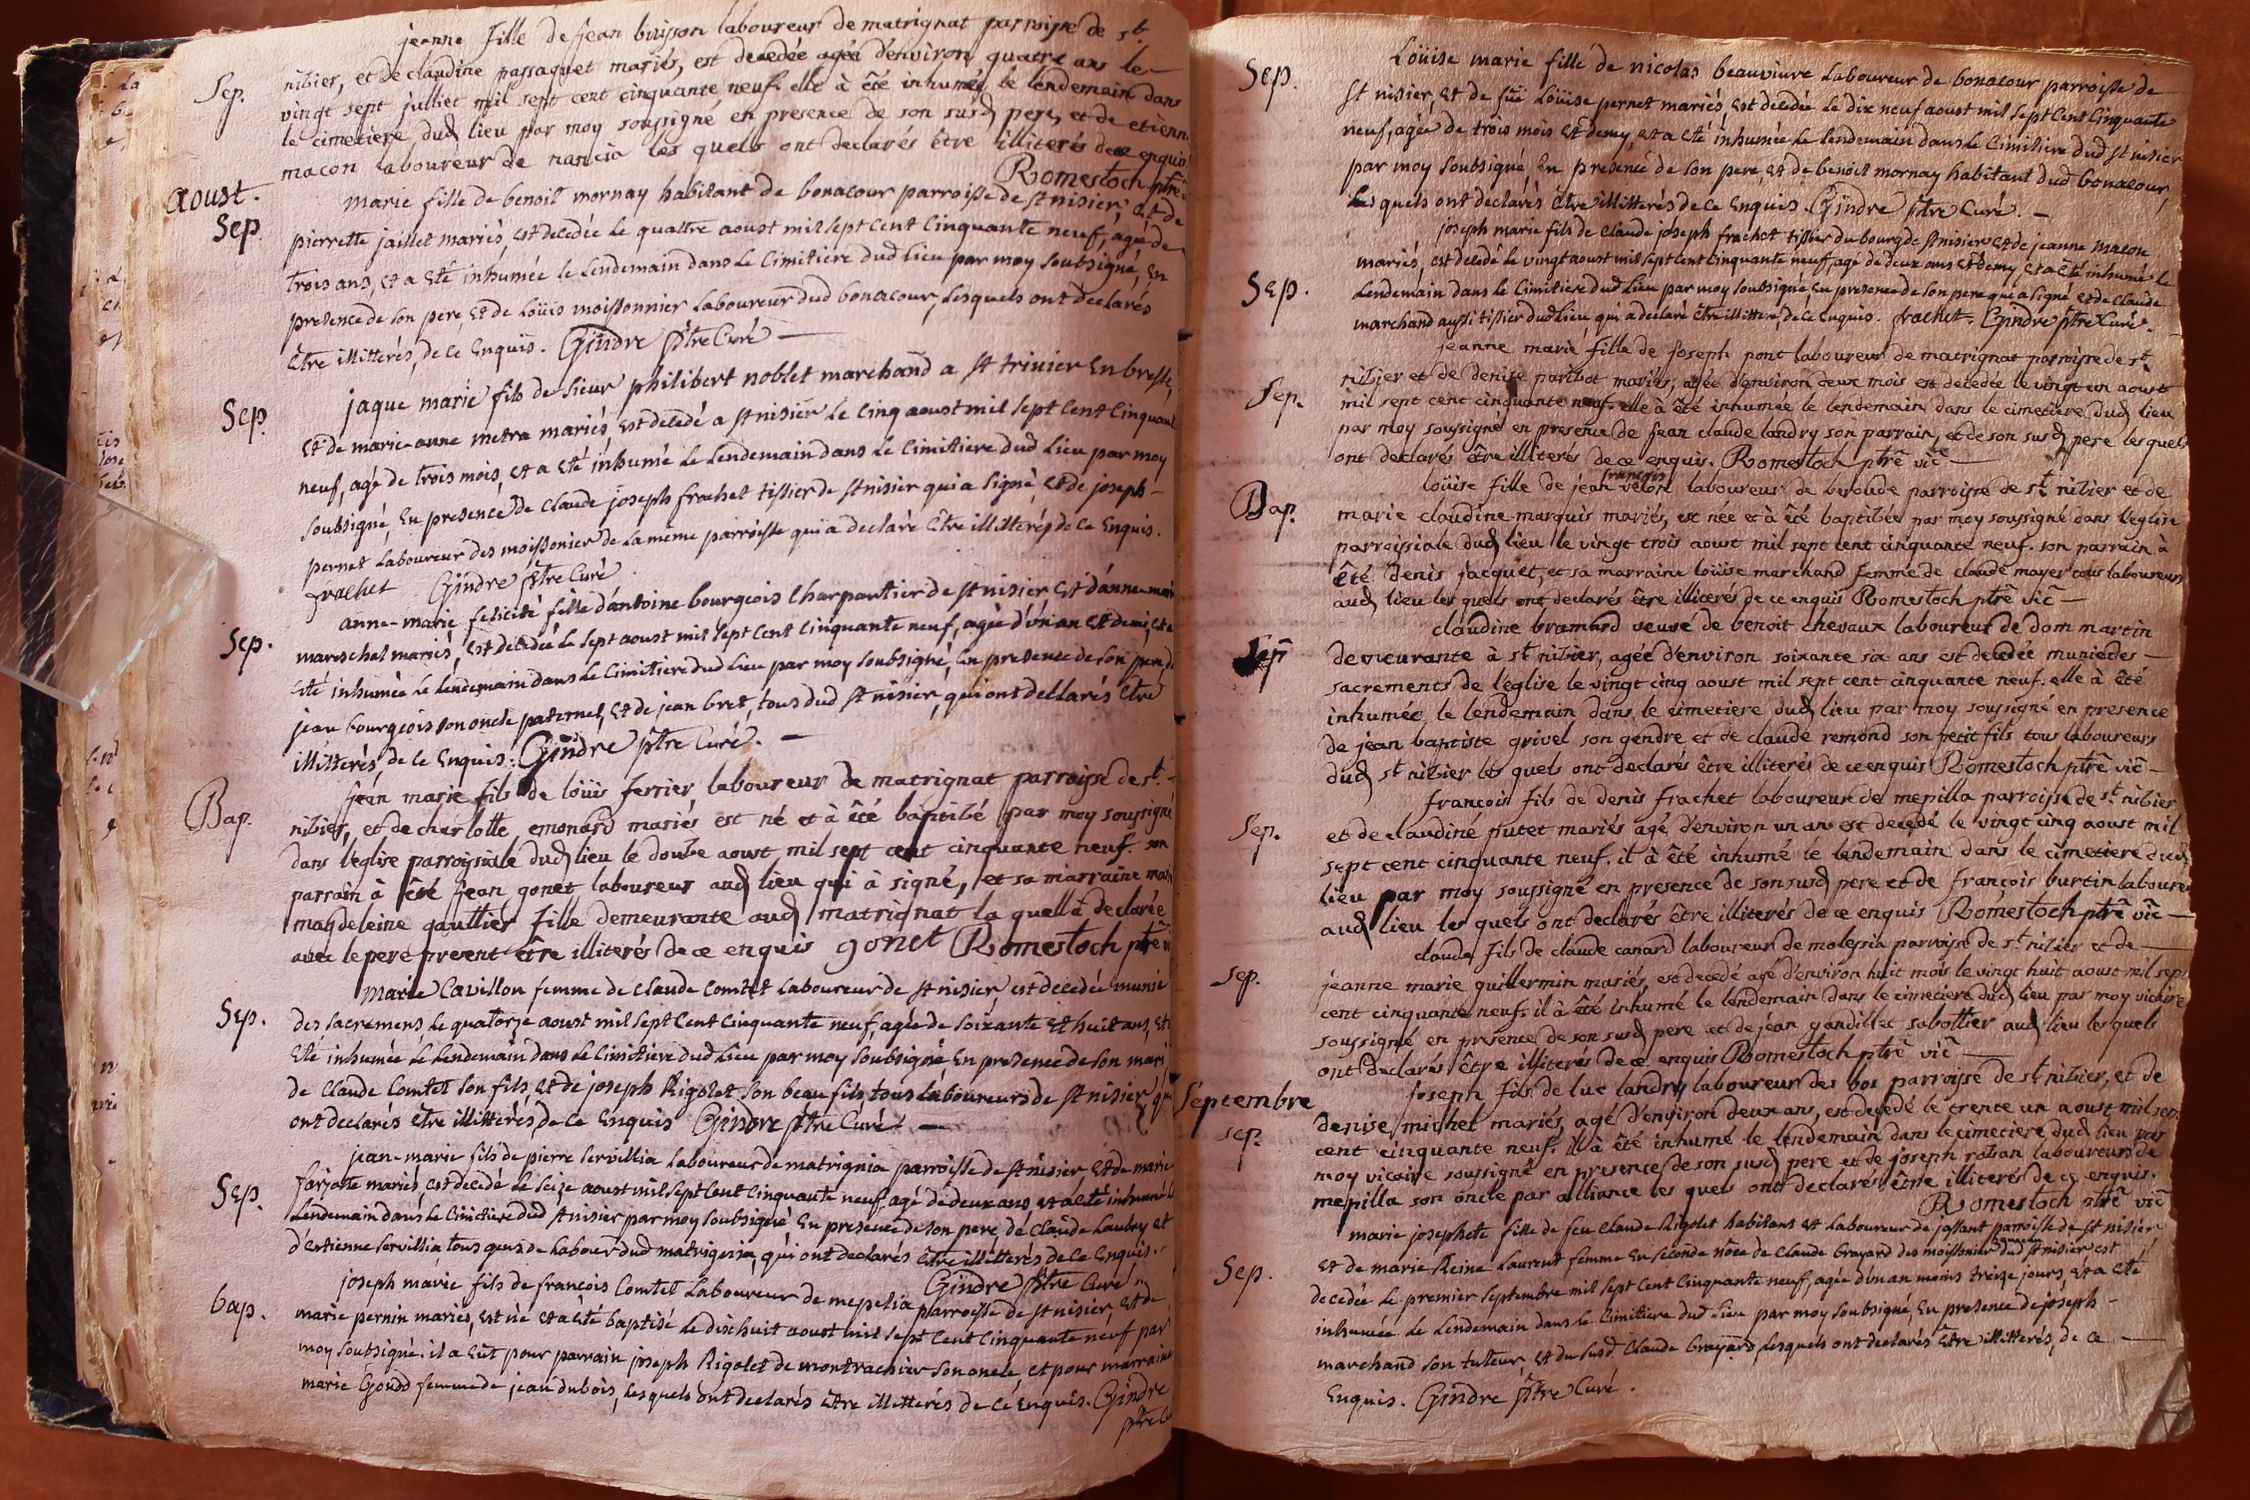 jeanne fille de jean buisson laboureur de matrignat parroisse de st
Sep.
nibier, et de claudine passaquet mariés, est decedée agée d'environ quatre ans le
vingt sept julliet mil sept cent cinquante neuf. elle à été inhumée le lendemain dans
le cimetiere dud lieu par moy soussigné en presence de son susd pere, et de etienne
macon laboureur de nancia les quels ont declarés être illiterés de ce enquis
Romestoch ptre
aoust.
Sep.
marie fille de benoit mornay habitant de bonacour parroisse de st nisier, et de
pierrette jaillet mariés, est decedée le quattre aoust mil sept cent cinquante neuf, agé de
trois ans, et a eté inhumée le lendemain dans le cimitiere dud lieu par moy soubsigné, en
presence de son pere, et de loüis moissonnier laboureur dud bonacour, lesquels ont declarés
etre illitterés, de ce enquis. Gindre ptre curé —
Sep.
jaque marie fils de sieur philibert noblet marchand a st trivier en bresse,
et de marie-anne metra mariés, est decedé a st nisier le cinq aoust mil sept cent cinquante
neuf, agé de trois mois, et a eté inhumé le lendemain dans le cimitiere dud lieu par moy
soubsigné, en presence de claude joseph frachet tissier de st nisier qui a signé, et de joseph
pernet laboureur des moissonier de la même parroisse qui a declaré être illitterés de ce enquis.
frachet Gindre ptre curé.
Sep.
anne-marie felicité, fille d'antoine bourgeois charpantier de st nisier et d'anne-marie
mareschal mariés, est decedée le sept aoust mil sept cent cinquante neuf, agée d'un an et demi, et a
eté inhumée le lendemain dans le cimitiere dud lieu par moy soubsigné, en presence de son pere, de
jean bourgeois son oncle paternel, et de jean bret, tous dud st nisier, qui ont declarés être
illitterés, de ce enquis. Gindre ptre curé. —
Bap.
jean marie fils de loüis ferrier laboureur de matrignat parroisse de st
nibier, et de charlotte emonard mariés est né et à été baptibé par moy soussigné
dans l'eglise parroissiale dud lieu le doube aoust mil sept cent cinquante neuf. son
parrain à été jean gonet laboureur aud lieu qui à signé, et sa marraine marie
magdeleine gaultier fille demeurante aud matrignat la quelle à declarée
avec le pere present être illiterés de ce enquis gonet Romestoch ptre
Sep.
marie Cavillon femme de Claude Comtet laboureur de st nisier, est decedée munie
des sacremens, le quatorze aoust mil sept cent cinquante neuf, agée de soixante et huit ans, et a
eté inhumée le lendemain dans le cimitiere dud lieu par moy soubsigné en presence de son mari
de Claude Comtet son fils, et de joseph Rigolet son beau fils, tous laboureurs de st nisier qui
ont declarés etre illitterés, de ce enquis Gindre ptre curé. —
Sep.
jean-marie fils de pierre servillia laboureur de matrignia parroisse de st nisier, et de marie
farjate mariés, est decedé le seize aoust mil sept cent cinquante neuf agé de deux ans, et a eté inhumé le
lendemain dans le cimitiere dud st nisier par moy soubsigné en presence de son pere, de Claude Laubry et
d'estienne servillia tous gens de labour dud matrignia, qui ont declarés etre illitterés de ce enquis.
Gindre ptre curé
bap.
joseph marie fils de françois Comtet laboureur de mepelia parroisse de st nisier, et de
marie pernin mariés, est né et a eté baptisé le dix huit aoust mil sept cent cinquante neuf par
moy soubsigné. il a eût pour parrain joseph Rigolet de montrachier son oncle, et pour marraine
marie Goudd femme de jean dubois, lesquels ont declarés etre illitterés de ce enquis. Gindre
ptre
Sep.
Loüise marie fille de nicolas beauvivre laboureur de bonacour parroisse de
st nisier, et de fuë Loüise pernet mariés, est decedée le dix neuf aoust mil sept cent cinquante
neuf, agée de trois mois et demy, et a eté inhumée le lendemain dans le cimitiere dud st nisier
par moy soubsigné en presence de son pere, et de benoit mornay habitant dud bonacour,
lesquels ont declarés être illitterés de ce enquis. Gindre ptre curé. —
Sep.
joseph marie fils de claude joseph frachet tissier du bourg de st nisier et de jeanne macon
mariés, est decedé le vingt aoust mil sept cent cinquante neuf, agé de deux ans et demy, et a eté inhumé le
lendemain dans le cimitiere dud lieu par moy soubsigné, en presence de son pere qui a signé et de claude
marchand aussi tissier dud lieu, qui a declaré être illitteré, de ce enquis. frachet. Gindre ptre curé.
Sep.
jeanne marie fille de joseph pont laboureur de matrignat parroisse de st
nibier et de denise paribot mariés, agée d'environ deux mois est decedée le vingt un aoust
mil sept cent cinquante neuf. elle à été inhumée le lendemain dans le cimetiere dud lieu
par moy soussigné en presence de jean claude landry son parrain, et de son susd pere les quels
ont declarés être illiterés de ce enquis. Romestoch ptre vic —
Bap.
françois
loüise fille de jean velon laboureur de veroude parroisse de st nibier et de
marie claudine marquis mariés, est née et à été baptibée par moy soussigné dans l'eglise
parroissiale dud lieu le vingt trois aoust mil sept cent cinquante neuf. son parrain à
été denis jacquet, et sa marraine loüise marchand femme de claude mayer tous laboureurs
aud lieu les quels ont declarés être illiterés de ce enquis Romestoch ptre vic —
Sep
claudine bramard veuve de benoit chevaux laboureur de dom martin
demeurante à st nibier, agée d'environ soixante six ans est decedée munie des —
sacrements de l'eglise le vingt cinq aoust mil sept cent cinquante neuf. elle à été
inhumée le lendemain dans le cimetiere dud lieu par moy soussigné en presence
de jean baptiste grivel son gendre et de claude remond son petit fils tous laboureurs
dud st nibier les quels ont declarés être illiterés de ce enquis Romestoch ptre vic —
Sep.
françois fils de denis frachet laboureur de mepilla parroisse de st nibier
et de claudine putet mariés agé d'environ un an est decedé le vingt cinq aoust mil
sept cent cinquante neuf. il à été inhumé le lendemain dans le cimetiere dud
lieu par moy soussigné en presence de son susd pere et de françois burtin laboureur
aud lieu les quels ont declarés être illiterés de ce enquis Romestoch ptre vic —
Sep.
claude fils de claude canard laboureur de malessia parroisse de st nibier et de —
jeanne marie guillermin mariés, est decedé agé d'environ huit mois le vingt huit aoust mil sept
cent cinquante neuf. il à été inhumé le lendemain dans le cimetiere dud lieu par moy vicaire
soussigné en presence de son susd pere et de jean gandillet sabottier aud lieu les quels
ont declarés être illiterés de ce enquis Romestoch ptre vic —
Septembre
sep.
joseph fils de luc landry laboureur des bos parroisse de st nibier, et de
denise michel mariés, agé d'environ deux ans, est decedé le trente un aoust mil sept
cent cinquante neuf. il à été inhumé le lendemain dans le cimetiere dud lieu par
moy vicaire soussigné en presence de son susd pere et de joseph roban laboureur de
mepilla son oncle par alliance les quels ont declarés être illiterés de ce enquis.
Romestoch ptre vic
Sep.
marie josephete fille de feu Claude Rigolet habitant et laboureur de jassant parroisse de st nisier
et de marie Reine Laurent femme en seconde nôce de Claude Grayard des moissonier dud st nisier est
decedée le premier septembre mil sept cent cinquante neuf, agée d'un an moins treize jours, et a eté
inhumée le lendemain dans le cimitiere dud lieu par moy soubsigné, en presence de joseph —
marchand son tuteur, et du susd Claude Grayard, lesquels ont declarés être illitterés, de ce —
enquis. Gindre ptre curé.